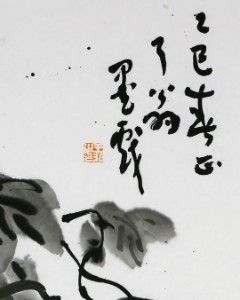 乙巳春正
了翁
墨戲